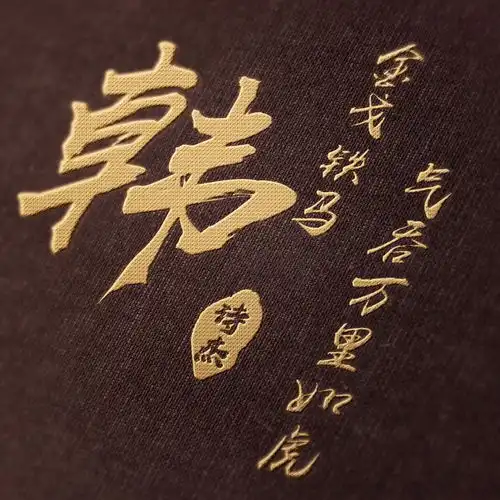 韩
诗杰
金戈铁马
气吞万里如虎